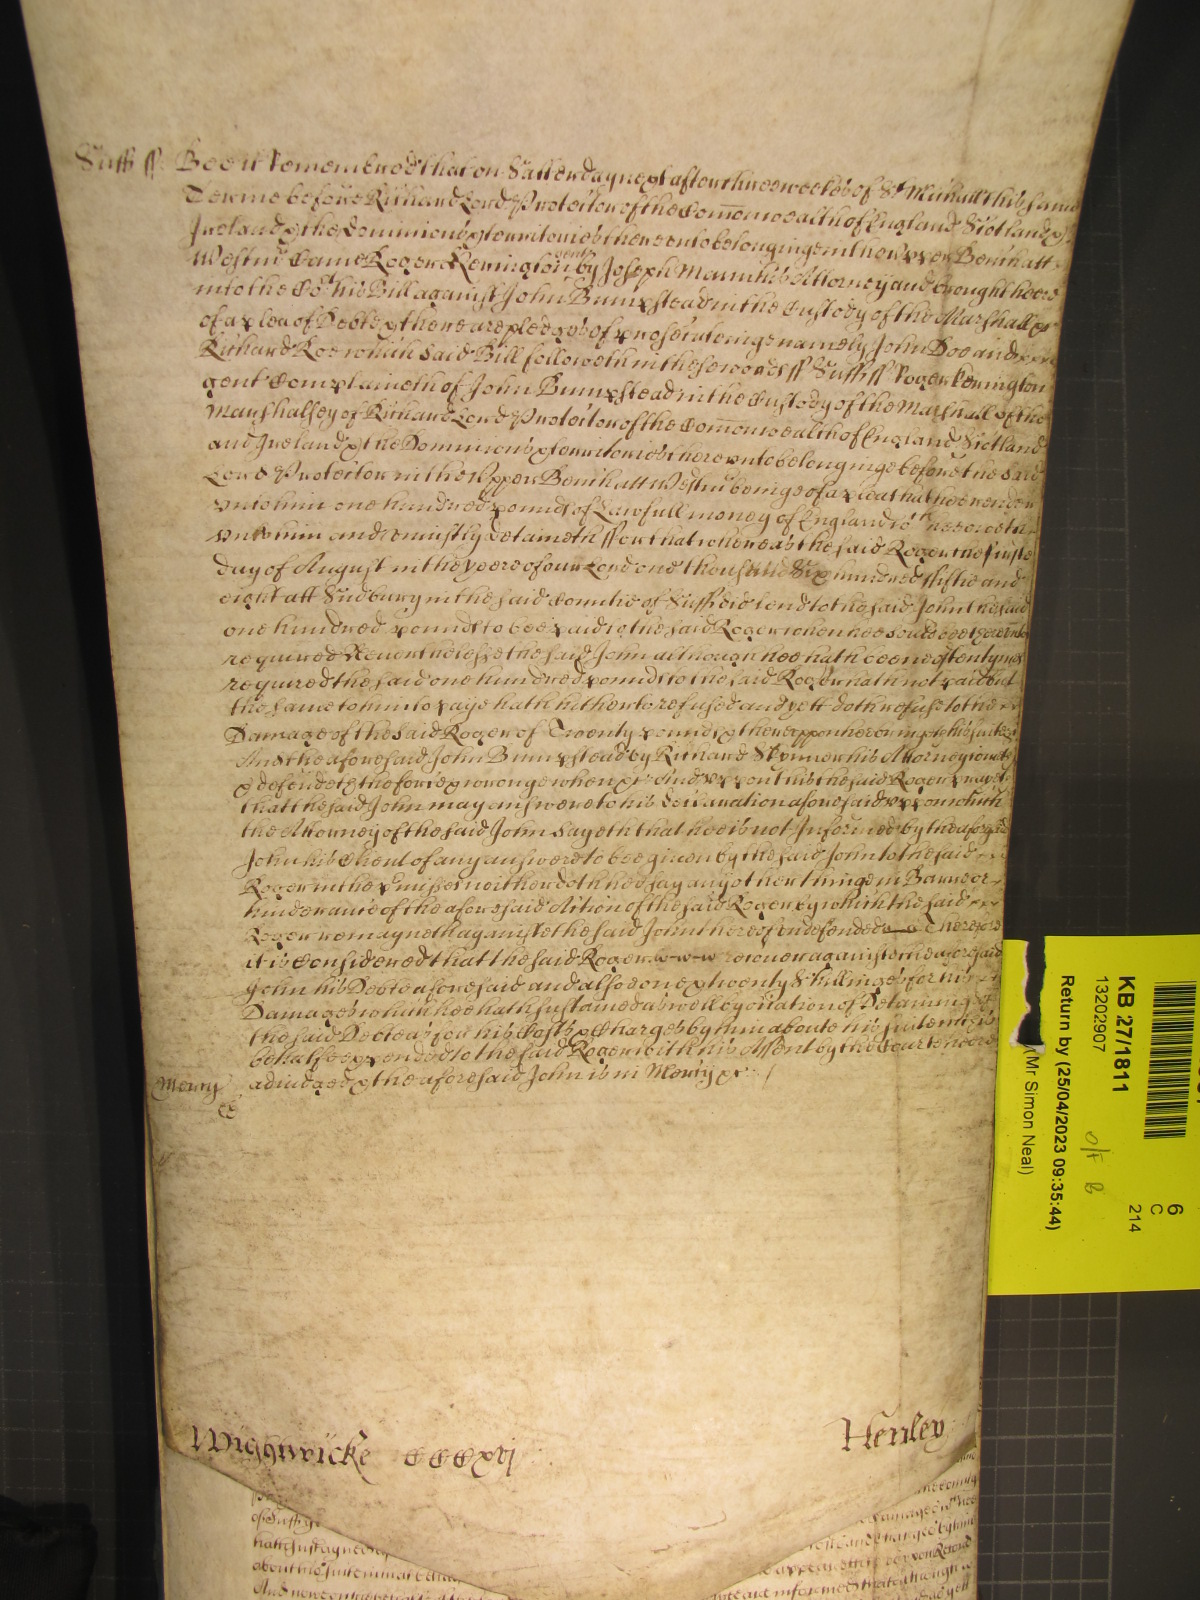 Suff ss. Bee it Remembred that on Satterday next after three weekes of St Michaell this same
Terme before Richard Lord Protector of the Com̄onwealth of England Scotland &
Ireland & the Dominions & territories thereunto belonginge in the Upper Bench att
Westm̄ Came Roger Kerington gent by Joseph Mann his Attorney and brought heere
into the Cort his Bill against John Bumpstead in the Custody of the Marshall &c
of a plea of Debte & there are pledges of prosecutinge namely John Doe and
Richard Roe which said Bill followeth in these words ss Suff ss Roger Kerington
gent Complaineth of John Bumpstead in the Custody of the Marshall of the
Marshalsey of Richard Lord Protector of the Com̄onwealth of England Scotland
and Ireland & the Dominions & territories thereunto belonginge before the said
Lord Protector in the Upper Bench att Westm̄ beinge of a plea that hee render
unto him one hundred pounds of Lawfull money of England wch hee oweth
unto him and uniustly detaineth ffor that whereas the said Roger the firste
day of August in the yeere of our Lord one thousand Six hundred ffiftie and
eight att Sudbury in the said Countie of Suff did lend to the said John the said
one hundred pounds to bee paid to the said Roger when hee should bee thereunto
required Neverthelesse the said John although hee hath beene oftentymes
required the said one hundred pounds to the said Roger hath not paid but
the same to him to paye hath hitherto refused and yett doth refuse to the
Damage of the said Roger of Twenty pounds & thereuppon hee bringeth his suite &c
And the aforesaid John Bumpstead by Richard his Attorney cometh
& defendeth the force & wronge when &c And uppon this the said Roger prayeth
that the said John may answere to his declaration aforesaid uppon which
the Attorney of the said John sayeth that hee is not Informed by the aforesaid
John his Client of any answere to bee given by the said John to the said
Roger in the p̱misses neither doth hee say any other thinge in Barre or
hinderance of the aforesaid Action of the said Roger by which the said
Roger remayneth against the said John thereof undefended Therefore
it is Considered that the said Roger recover against the aforesaid
John his Debte aforesaid and alsoe one & twenty Shillinges for his
Damages which hee hath sustained as well by occation of Detaining of
the said Debte as for his Costs & Charges by him about his suite in this
behalfe expended to the said Roger with his Assent by the Court heere
Mercy adiudged & the aforesaid John is in Mercy &c
Wightwicke CCCxvj Henley
about his suite in that behalfe
KB 27/1811
13202907
Return by (25/04/2023 09:35:44)
(Mr Simon Neal)
6
C
214
O/F B